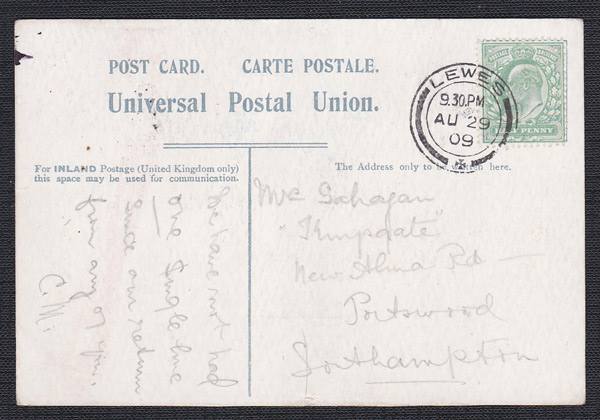 POST CARD. CARTE POSTALE.
Universal Postal Union.
For INLAND Postage (United Kingdom only)
this space may be used for communication.
The Address only to be written here.
LEWES
9.30.PM
AU 29
09
HALFPENNY
We have not had
one single line
since our return
from any of you.
C.M.
Mrs Gahagan
"Kempsgate"
New Alma Rd
Portswood
Southampton